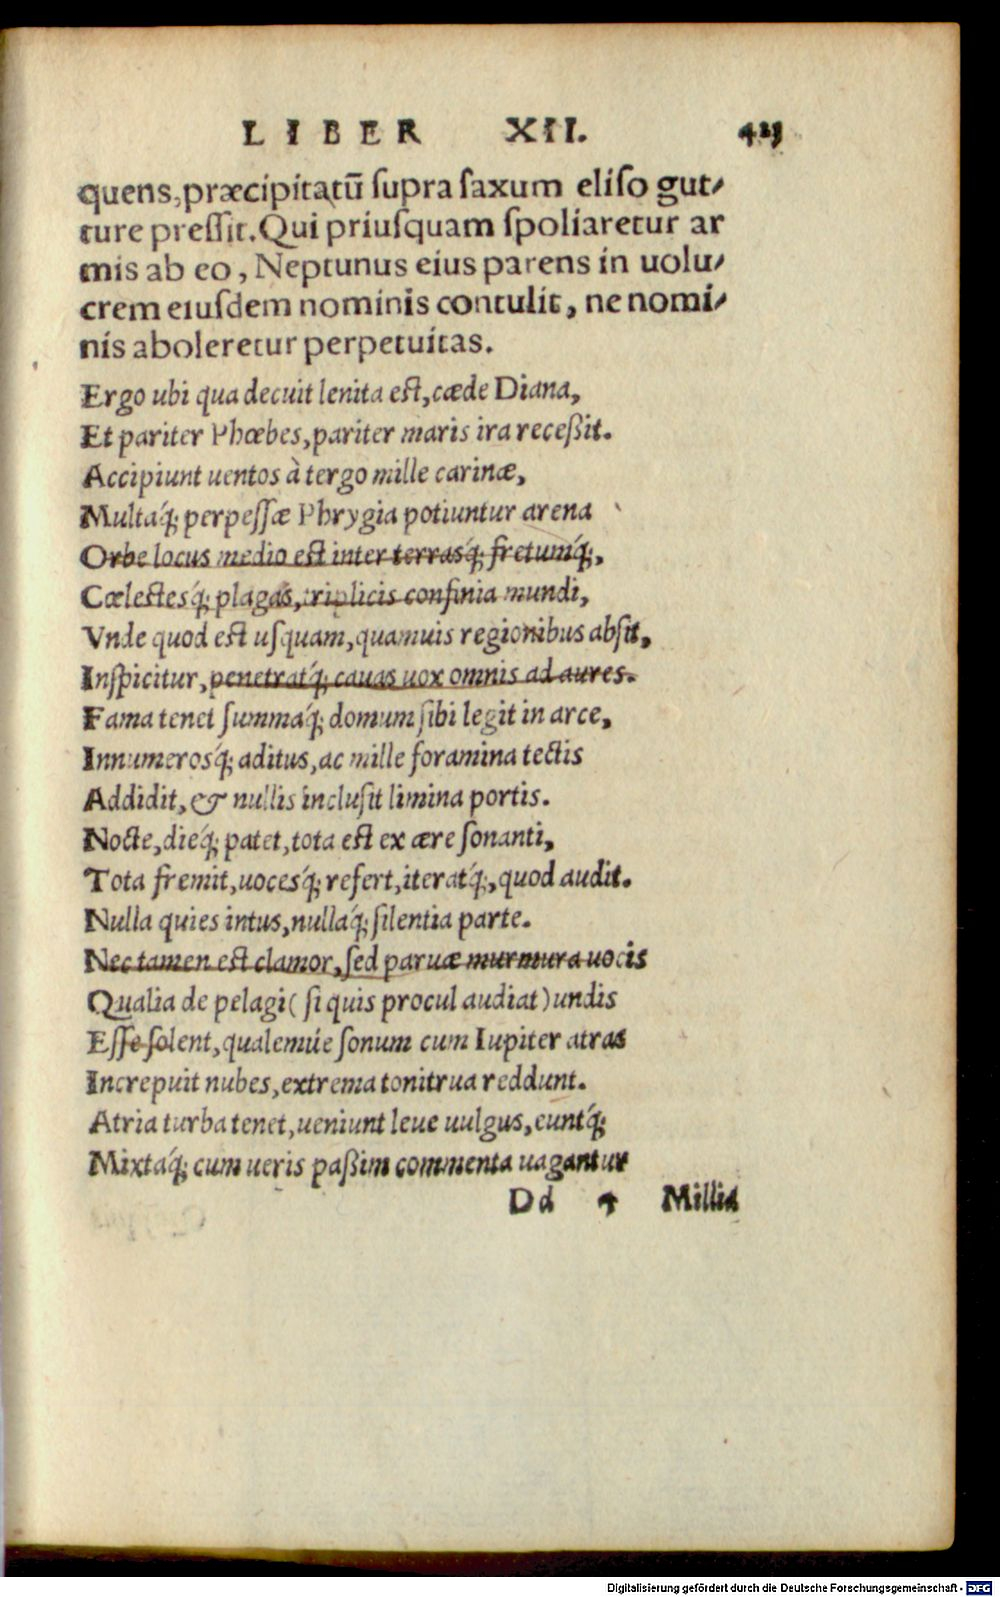 LIBER XII. 423
quens, præcipitatū ſupra ſaxum eliſo gut-
ture preſſit. Qui priuſquam ſpoliaretur ar
mis ab eo, Neptunus eius parens in uolu-
crem eiuſdem nominis contulit, ne nomi-
nis aboleretur perpetuitas.
Ergo ubi qua decuit lenita eſt, cæde Diana,
Et pariter Phœbes, pariter maris ira receßit.
Accipiunt uentos à tergo mille carinæ,
Multaq́; perpeſſæ Phrygia potiuntur arena
Orbe locus medio eſt inter terrasq́; fretumq́;,
Cœleſtesq́; plagas, triplicis confinia mundi,
Vnde quod eſt uſquam, quamuis regionibus abſit,
Inſpicitur, penetratq́; cauas uox omnis ad aures.
Fama tenet ſummaq́; domum ſibi legit in arce,
Innumerosq́; aditus, ac mille foramina tectis
Addidit, & nullis incluſit limina portis.
Nocte, dieq́; patet, tota eſt ex ære ſonanti,
Tota fremit, uocesq́; refert, iteratq́;, quod audit.
Nulla quies intus, nullaq́; ſilentia parte.
Nec tamen eſt clamor, ſed paruæ murmura uocis
Qualia de pelagi (ſi quis procul audiat) undis
Eſſe ſolent, qualemúe ſonum cum Iupiter atras
Increpuit nubes, extrema tonitrua reddunt.
Atria turba tenet, ueniunt leue uulgus, euntq́;
Mixtaq́; cum ueris paßim commenta uagantur
Dd 4 Millia
Digitalisierung gefördert durch die Deutsche Forschungsgemeinschaft - DFG